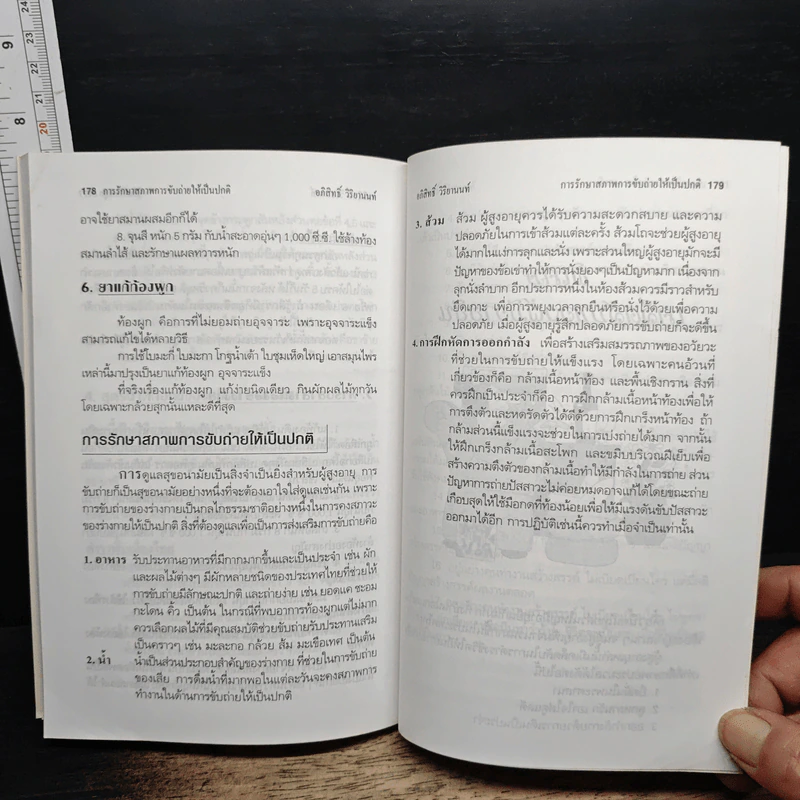 178 การรักษาสภาพการขับถ่ายให้เป็นปกติ
อภิสิทธิ์ วิริยานนท์
อาจใช้ยาสมานผสมอีกก็ได้
8. จุนสี หนัก 5 กรัม กับน้ำสะอาดอุ่นๆ 1,000 ซี.ซี. ใช้ล้างท้อง
สมานลำไส้ และรักษาแผลทวารหนัก
6. ยาแก้ท้องผูก
ท้องผูก คือการที่ไม่ยอมถ่ายอุจจาระ เพราะอุจจาระแข็ง
สามารถแก้ไขได้หลายวิธี
การใช้ใบมะกี่ ใบมะกา โกฐน้ำเต้า ใบชุมเห็ดใหญ่ เอาสมุนไพร
เหล่านี้มาปรุงเป็นยาแก้ท้องผูก อุจจาระแข็ง
ที่จริงเรื่องแก้ท้องผูก แก้ง่ายนิดเดียว กินผักผลไม้ทุกวัน
โดยเฉพาะกล้วยสุกนั้นแหละดีที่สุด
การรักษาสภาพการขับถ่ายให้เป็นปกติ
การดูแลสุขอนามัยเป็นสิ่งจำเป็นยิ่งสำหรับผู้สูงอายุ การ
ขับถ่ายก็เป็นสุขอนามัยอย่างหนึ่งที่จะต้องเอาใจใส่ดูแลเช่นกัน เพราะ
การขับถ่ายของร่างกายเป็นกลไกธรรมชาติอย่างหนึ่งในการคงสภาวะ
ของร่างกายให้เป็นปกติ สิ่งที่ต้องดูแลเพื่อเป็นการส่งเสริมการขับถ่ายคือ
1. อาหาร รับประทานอาหารที่มีกากมากขึ้นและเป็นประจำ เช่น ผัก
และผลไม้ต่างๆ มีผักหลายชนิดของประเทศไทยที่ช่วยให้
การขับถ่ายมีลักษณะปกติ และถ่ายง่าย เช่น ยอดแค ชะอม
กะโดน ติ้ว เป็นต้น ในกรณีที่พบอาการท้องผูกแต่ไม่มาก
ควรเลือกผลไม้ที่มีคุณสมบัติช่วยขับถ่ายรับประทานเสริม
เป็นคราวๆ เช่น มะละกอ กล้วย ส้ม มะเขือเทศ เป็นต้น
2. น้ำ น้ำเป็นส่วนประกอบสำคัญของร่างกาย ที่ช่วยในการขับถ่าย
ของเสีย การดื่มน้ำที่มากพอในแต่ละวันจะคงสภาพการ
ทำงานในด้านการขับถ่ายให้เป็นปกติ
อภิสิทธิ์ วิริยานนท์
การรักษาสภาพการขับถ่ายให้เป็นปกติ 179
3. ส้วม ส้วม ผู้สูงอายุควรได้รับความสะดวกสบาย และความ
ปลอดภัยในการเข้าส้วมแต่ละครั้ง ส้วมโถจะช่วยผู้สูงอายุ
ได้มากในแง่การลุกและนั่ง เพราะส่วนใหญ่ผู้สูงอายุมักจะมี
ปัญหาของข้อเข่าทำให้การนั่งยองๆเป็นปัญหามาก เนื่องจาก
ลุกนั่งลำบาก อีกประการหนึ่งในห้องส้วมควรมีราวสำหรับ
ยึดเกาะ เพื่อการพยุงเวลาลุกยืนหรือนั่งไว้ด้วยเพื่อความ
ปลอดภัย เมื่อผู้สูงอายุรู้สึกปลอดภัยการขับถ่ายก็จะดีขึ้น
4. การฝึกหัดการออกกำลัง เพื่อสร้างเสริมสมรรถภาพของอวัยวะ
ที่ช่วยในการขับถ่ายให้แข็งแรง โดยเฉพาะคนอ้วนที่
เกี่ยวข้องก็คือ กล้ามเนื้อหน้าท้อง และพื้นเชิงกราน สิ่งที่
ควรฝึกเป็นประจำก็คือ การฝึกกล้ามเนื้อหน้าท้องเพื่อให้
การตึงตัวและหดรัดตัวได้ดีด้วยการฝึกเกร็งหน้าท้อง ถ้า
กล้ามส่วนนี้แข็งแรงจะช่วยในการเบ่งถ่ายได้มาก จากนั้น
ให้ฝึกเกร็งกล้ามเนื้อสะโพก และขมิบบริเวณฝีเย็บเพื่อ
สร้างความตึงตัวของกล้ามเนื้อทำให้มีกำลังในการถ่าย ส่วน
ปัญหาการถ่ายปัสสาวะไม่ค่อยหมดอาจแก้ได้โดยขณะถ่าย
เกือบสุดให้ใช้มือกดที่ท้องน้อยเพื่อให้มีแรงดันขับปัสสาวะ
ออกมาได้อีก การปฏิบัติเช่นนี้ควรทำเมื่อจำเป็นเท่านั้น
9
8
24
23
22
21
20